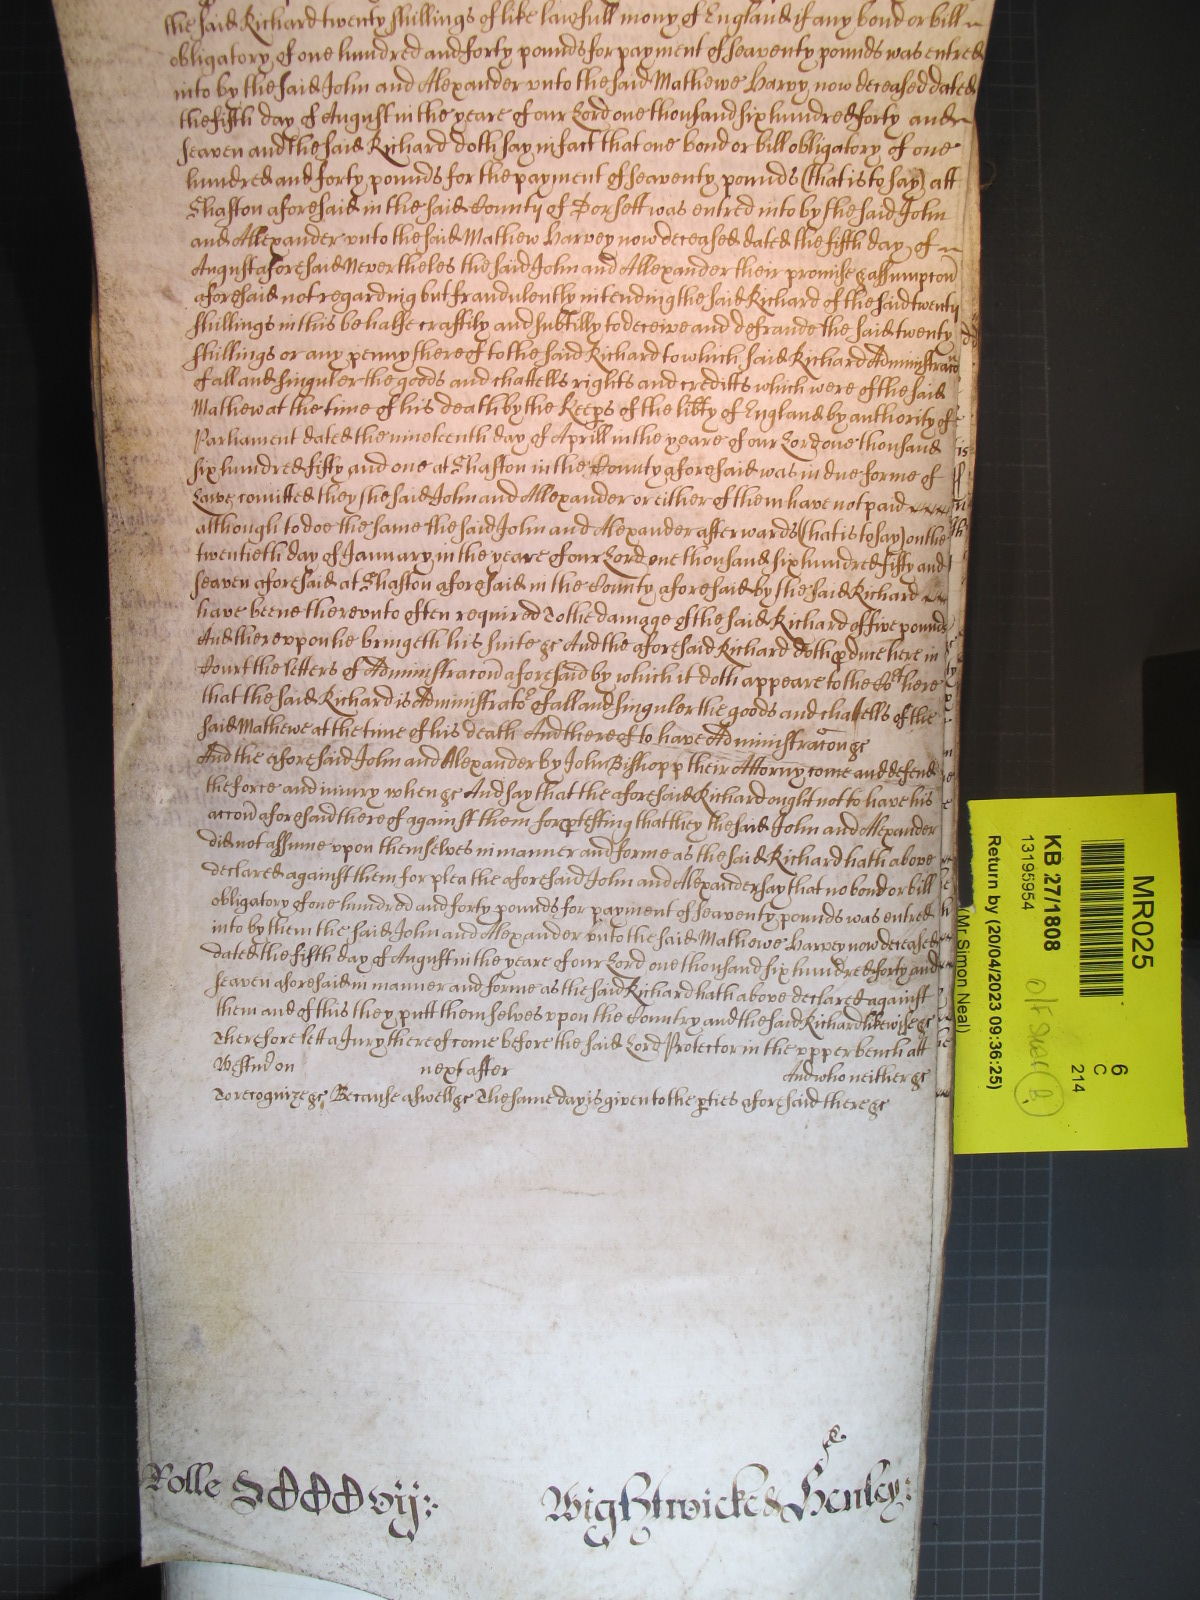 the said Richard twenty shillings of like lawfull mony of England if any bond or bill
obligatory of one hundred and forty pounds for payment of seaventy pounds was entred
into by the said John and Alexander vnto the said Mathewe Harvy now deceased dated
the fifth day of August in the yeare of our Lord one thousand six hundred forty and
seaven and the said Richard doth say in fact that one bond or bill obligatory of one
hundred and forty pounds for the payment of seaventy pounds (that is to say) att
Shaston aforesaid in the said County of Dorsett was entred into by the said John
and Allexander vnto the said Mathew Harvey now deceased dated the fifth day of
August aforesaid Neverthelesse the said John and Allexander their promise & assumpcon
aforesaid not regarding but fraudulently intending the said Richard of the said twenty
shillings in this behalfe craftily and subtilly to deceive and defraude the said twenty
shillings or any penny thereof to the said Richard to which said Richard Administracon
of all and singuler the goods and chattells rights and creditts which were of the said
Mathew at the time of his death by the Keeps of the libty of England by authority of
Parliament dated the nineteenth day of Aprill in the yeare of our Lord one thousand
six hundred fifty and one at Shaston in the County aforesaid was in due forme of
Lawe comitted they the said John and Allexander or either of them have not paid
although to doe the same the said John and Alexander afterwards (that is to say) on the
twentieth day of January in the yeare of our Lord one thousand six hundred fifty and
seaven aforesaid at Shaston aforesaid in the County aforesaid by the said Richard
have beene therevnto often required To the damage of the said Richard of five pounds
And therevpon he bringeth his suite &c And the aforesaid Richard doth pduce here in
Court the letters of Administracon aforesaid by which it doth appeare to the Cort here
that the said Richard is Administrator of all and singuler the goods and chattells of the
said Mathewe at the time of his death And thereof to have Administracon &c
And the aforesaid John and Alexander by John Bishopp their Attorny come and defend
the force and iniury when &c And say that the aforesaid Richard ought not to have his
accon aforesaid thereof against them for ptesting that they the said John and Alexander
did not assume vpon themselves in manner and forme as the said Richard hath above
declared against them for plea the aforesaid John and Alexander say that no bond or bill
obligatory of one hundred and forty pounds for payment of seaventy pounds was entred
into by them the said John and Alexander vnto the said Mathewe Harvey now deceased
dated the fifth day of August in the yeare of our Lord one thousand six hundred forty and
seaven aforesaid in manner and forme as the said Richard hath above declared against
them and of this they putt themselves vpon the Country and the said Richard likewise &c
Therefore lett a Jury thereof come before the said Lord Protector in the vpper bench att
Westmr on next after And who neither &c
To recognize &c Because aswell &c The same day is given to the pties aforesaid there &c
Rolle DCCCvij
Wightwicke & Henley
MR025
6
C
214
KB 27/1808
13195954
Return by (20/04/2023 09:36:25)
(Mr Simon Neal)